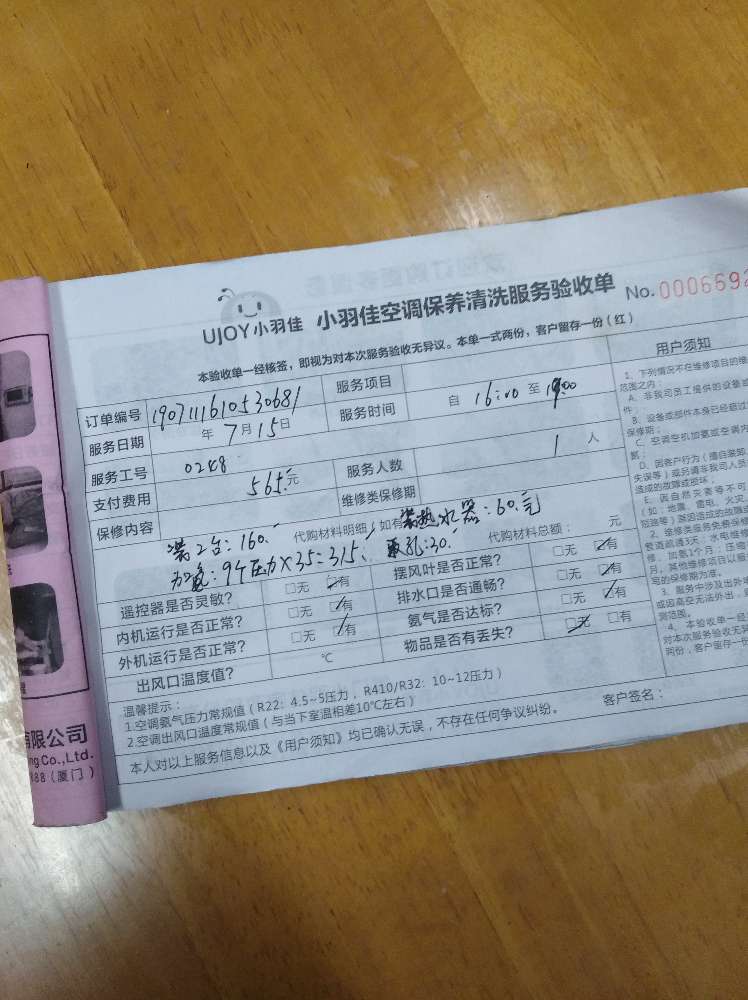 UJOY小羽佳 小羽佳空调保养清洗服务验收单 No.0006692
本验收单一经核签，即视为对本次服务验收无异议。本单一式两份，客户留存一份（红）
订单编号 1907111610530681 服务项目
服务日期 年 7月15日 服务时间 自 16:00 至 19:00
服务工号 0248 服务人数 1 人
支付费用 565元 维修类保修期
保修内容
代购材料明细（如有
装2台：160. 装热水器：60.元
加氨：9个压力×35=315. 取孔：30.
代购材料总额： 元
遥控器是否灵敏？ □无 □有 摆风叶是否正常？ □无 □有
内机运行是否正常？ □无 □有 排水口是否通畅？ □无 □有
外机运行是否正常？ □无 □有 氨气是否达标？ □无 □有
出风口温度值？ ℃ 物品是否有丢失？ □无 □有
温馨提示：
1.空调氨气压力常规值（R22：4.5~5压力，R410/R32：10~12压力）
2.空调出风口温度常规值（与当下室温相差10℃左右）
本人对以上服务信息以及《用户须知》均已确认无误，不存在任何争议纠纷。 客户签名：
用户须知
1、下列情况不在维修项目的维
范围之内：
A、非我司员工提供的设备或
件；
B、设备或部件本身已经超过
保修期；
C、空调空机加氨或空调内
D、因客户行为（擅自装卸
失误等）或另请非我司人员
造成的故障或损坏；
E、因自然灾害等不可
（如：地震、雷电、火灾
短路等）原因造成的故障或
2、维修类服务免费保修
管道疏通3天；水电维修
修，加氨1个月；压缩
月，其他维修项目以服
写的保修期为准。
3、服务中涉及出外墙
或因高空无法外出，
测范围。
4、本验收单一经
对本次服务验收无
两份，客户留存一份
有限公司
ng Co.,Ltd.
88（厦门）